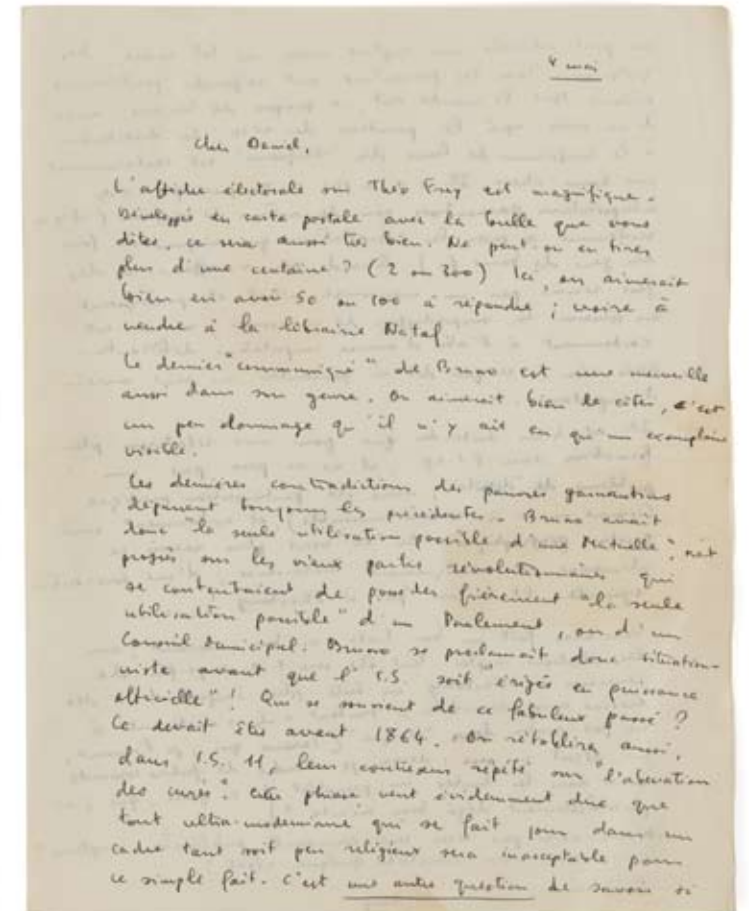 4 mai
Cher Daniel,
L'affiche électorale sur Théo Frey est magnifique.
Développée en carte postale avec la bulle que vous
dites, ce sera aussi très bien. Ne peut-on en tirer
plus d'une centaine ? (2 ou 300) Ici, on aimerait
bien en avoir 50 ou 100 à répandre ; voire à
vendre à la librairie Nataf.
Le dernier "communiqué" de Bruno est une merveille
aussi dans son genre. On aimerait bien le citer, c'est
un peu dommage qu'il n'y ait eu qu'un exemplaire
visible.
Les dernières contradictions des pauvres garnautins
dépassent toujours les précédentes. Bruno avait
donc "la seule utilisation possible d'une Mutuelle", net
progrès sur les vieux partis révolutionnaires qui
se contentaient de posséder fièrement "la seule
utilisation possible" d'un Parlement, ou d'un
Conseil Municipal. Bruno se proclamait donc situation-
niste avant que l'I.S. soit "érigée en puissance
officielle" ! Qui se souvient de ce fabuleux passé ?
Ce devait être avant 1864. On rétablira aussi,
dans I.S. 11, leur contresens répété sur "l'aberration
des curés". Cette phrase veut évidemment dire que
tout ultra-modernisme qui se fait jour dans un
cadre tant soit peu religieux sera inacceptable par
ce simple fait. C'est une autre question de savoir si